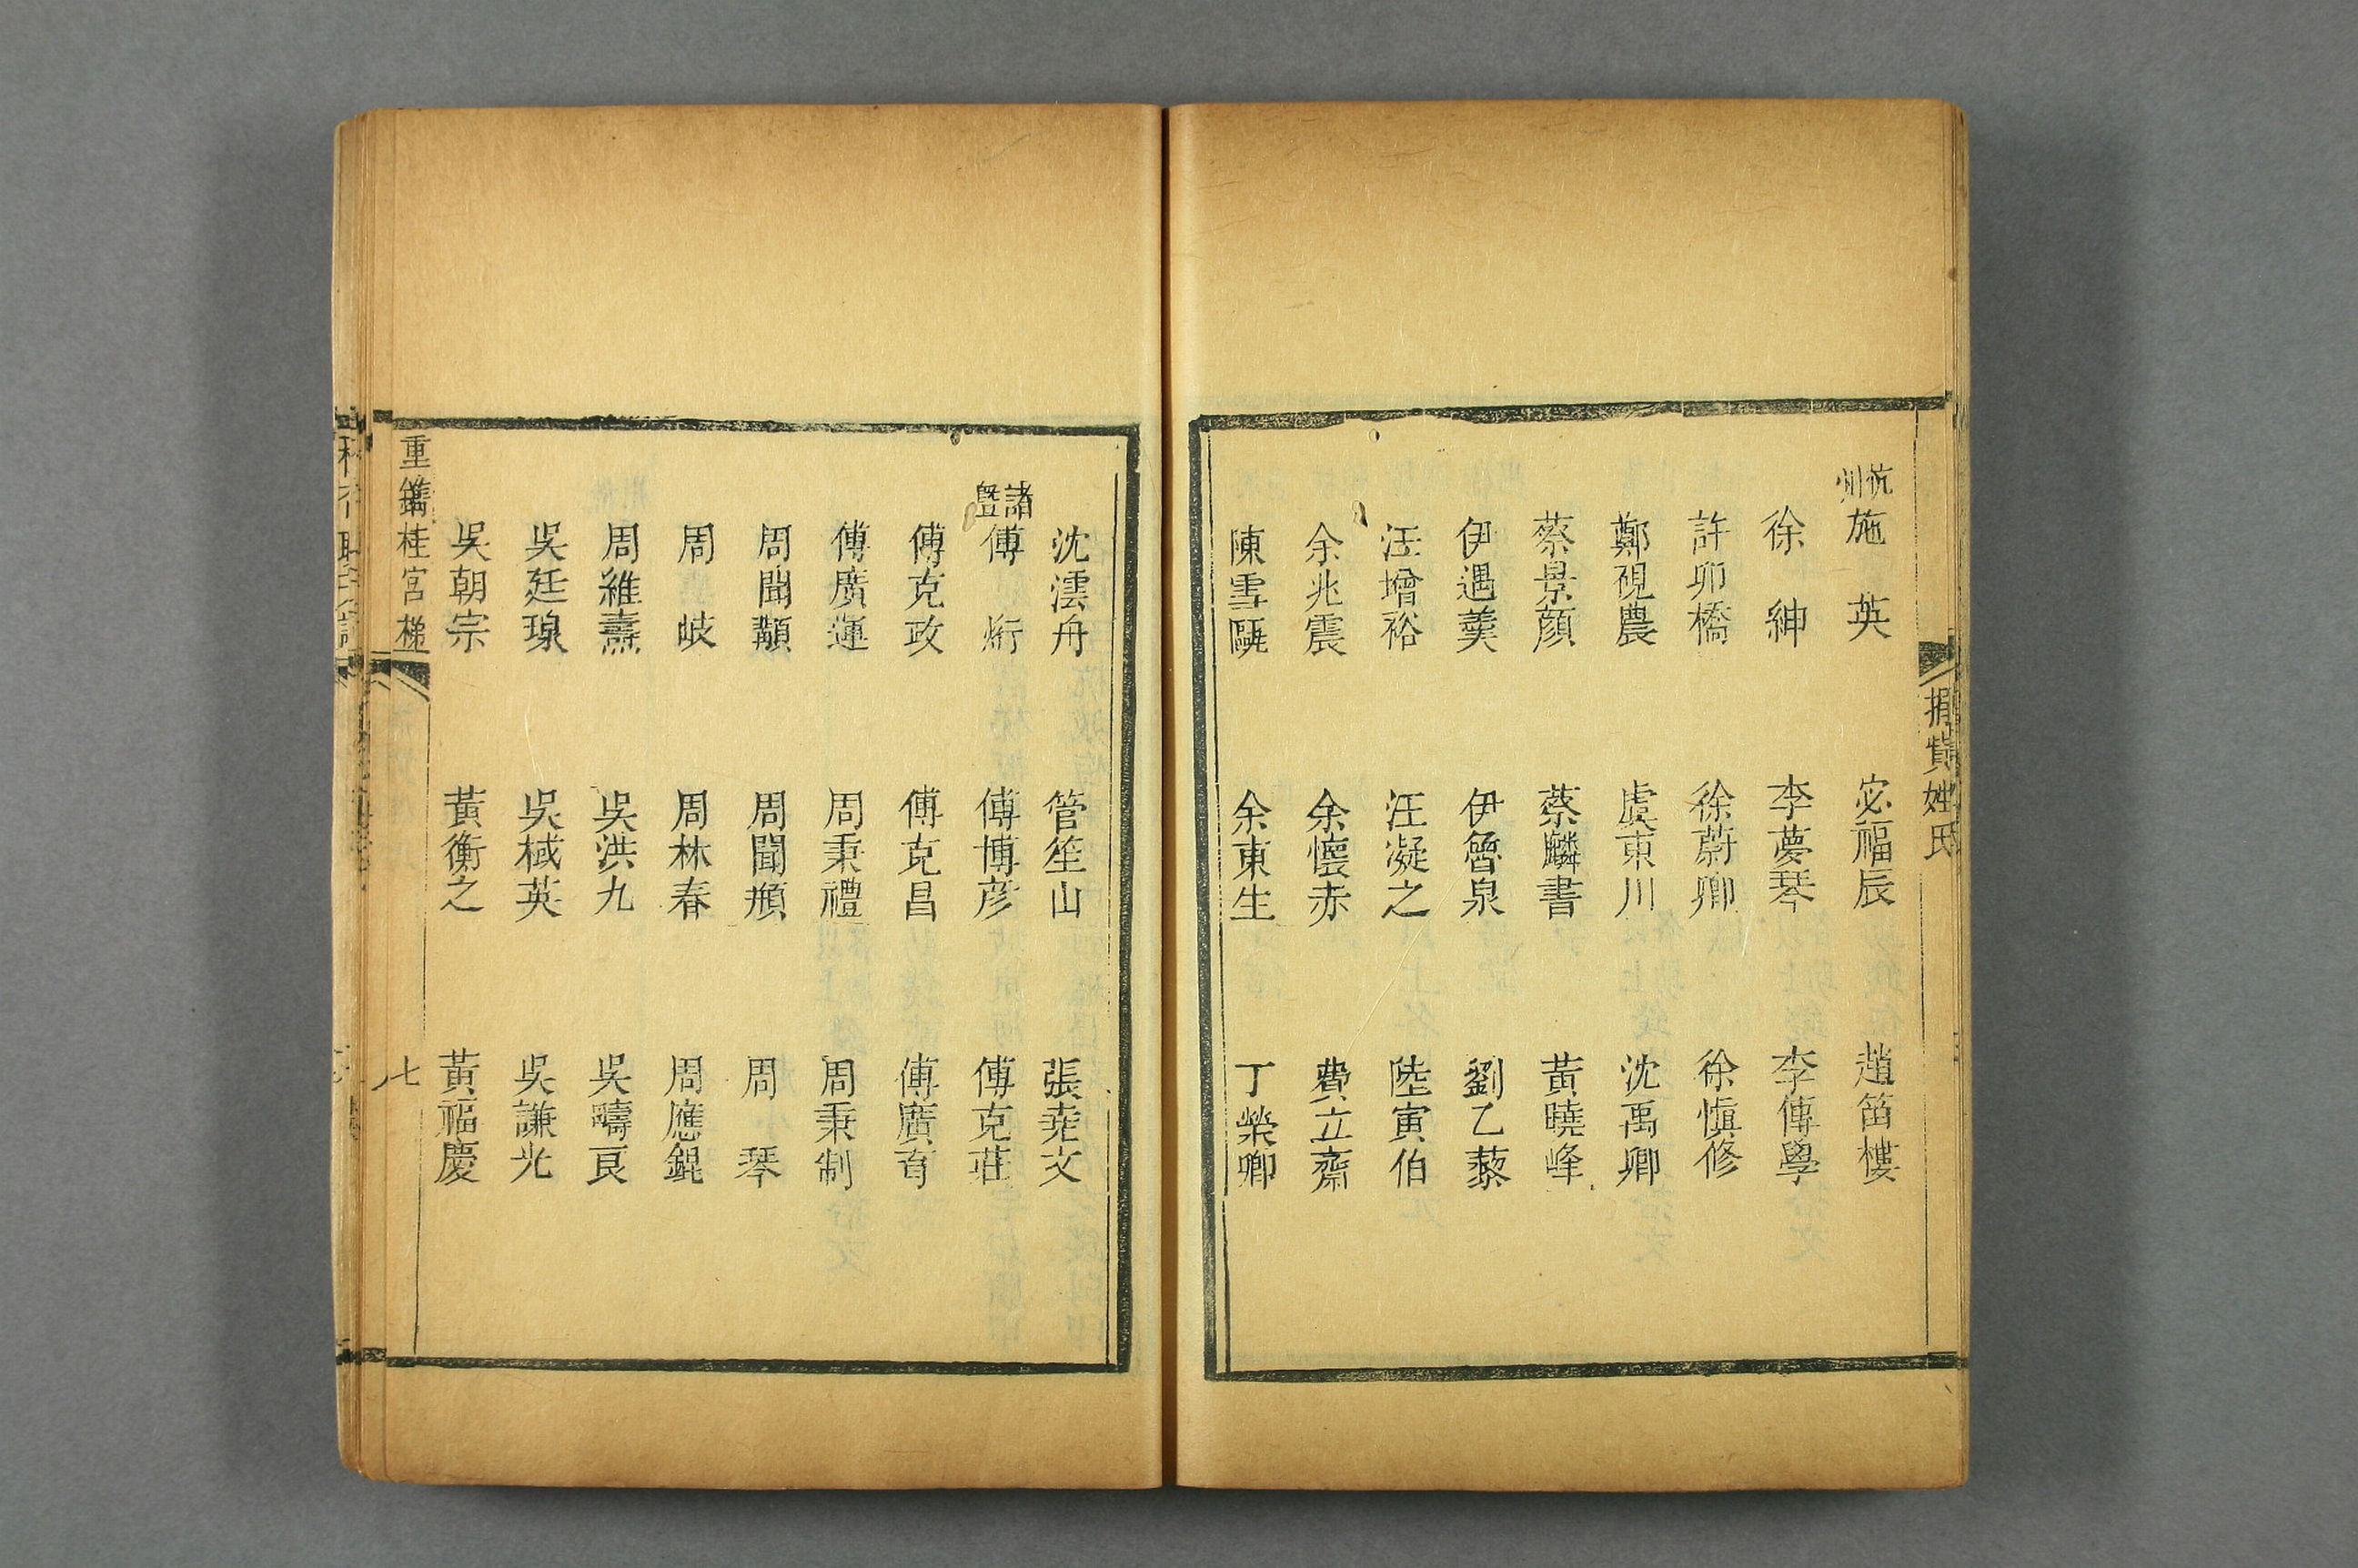 捐貲姓氏
杭州 施英 宓福辰 趙笛樓
徐紳 李夢琴 李傳學
許卯橋 徐蔚卿 徐愼修
鄭硯農 虞東川 沈禹卿
蔡景顔 蔡麟書 黃曉峰
伊遇羮 伊魯泉 劉乙藜
汪增裕 汪凝之 陸寅伯
余兆震 余懷赤 費立齋
陳雪甌 余東生 丁榮卿
沈澐舟 管笙山 張堯文
諸暨 傅烆 傅博彦 傅克莊
傅克政 傅克昌 傅廣育
傅廣運 周秉禮 周秉制
周聞顜 周聞頫 周琴
周岐 周林春 周應錕
周維燾 吳洪九 吳疇良
吳廷瑔 吳棫英 吳謙光
吳朝宗 黃衡之 黃福慶
重鐫桂宮梯 七